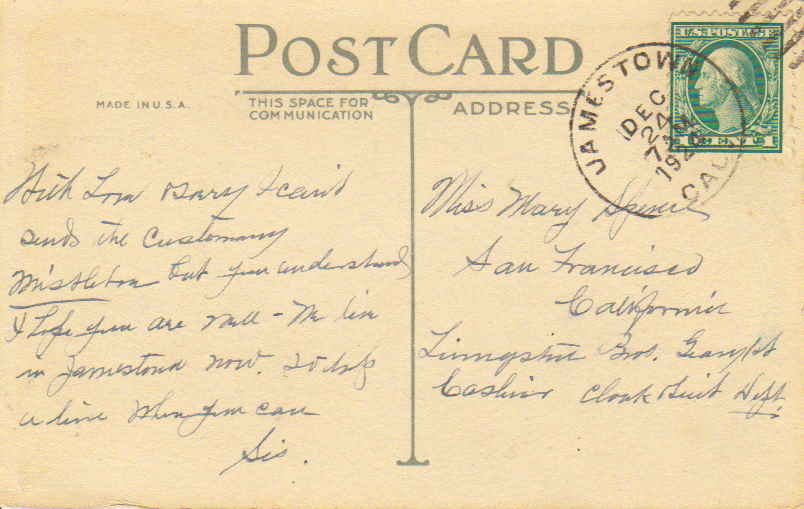 POST CARD
MADE IN U.S.A.
THIS SPACE FOR
COMMUNICATION
ADDRESS
U.S. POSTAGE
JAMESTOWN
DEC
24
7 AM
1920
CAL
With Love I can't
send the Customary
Mistletoe but you understand
I hope you are well - We live
in Jamestown now.
a line when you can
Sis.
Miss Mary
San Francisco
California
Livingston Bros. Geary St
Cashier Cloak & Suit Dept.